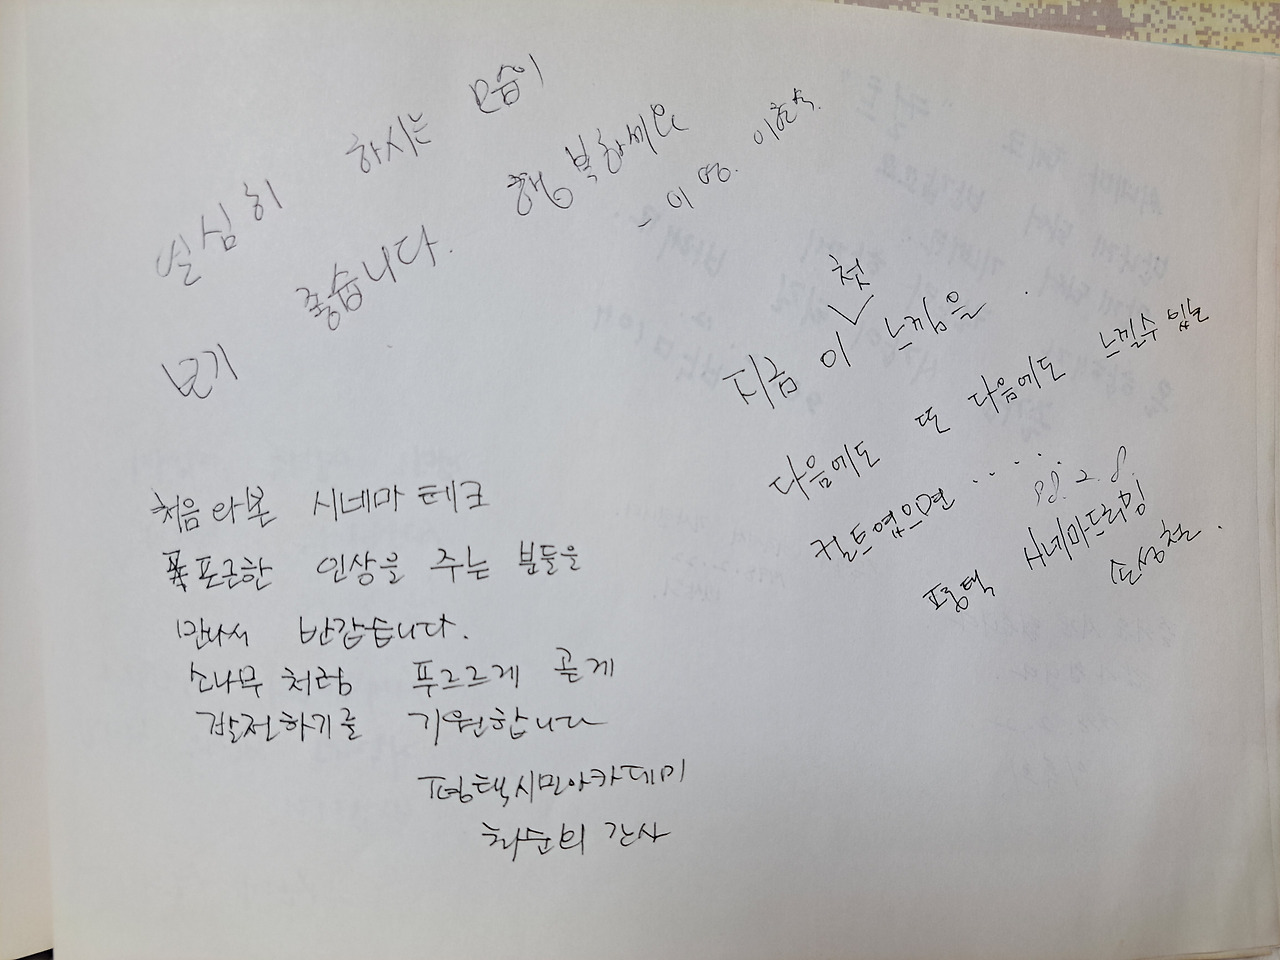 열심히 하시는 모습이
보기 좋습니다. 행복하세요
- 이영. 이호숙.
첫
지금 이 느낌을.
다음에도 또 다음에도 느낄수 있는
컬트였으면 ......
98. 2. 8.
평택 시네마드리밍
손성철.
처음 와본 시네마테크
포근한 인상을 주는 분들을
만나서 반갑습니다.
소나무처럼 푸르르게 곧게
발전하기를 기원합니다
평택시민아카데미
최순희 간사